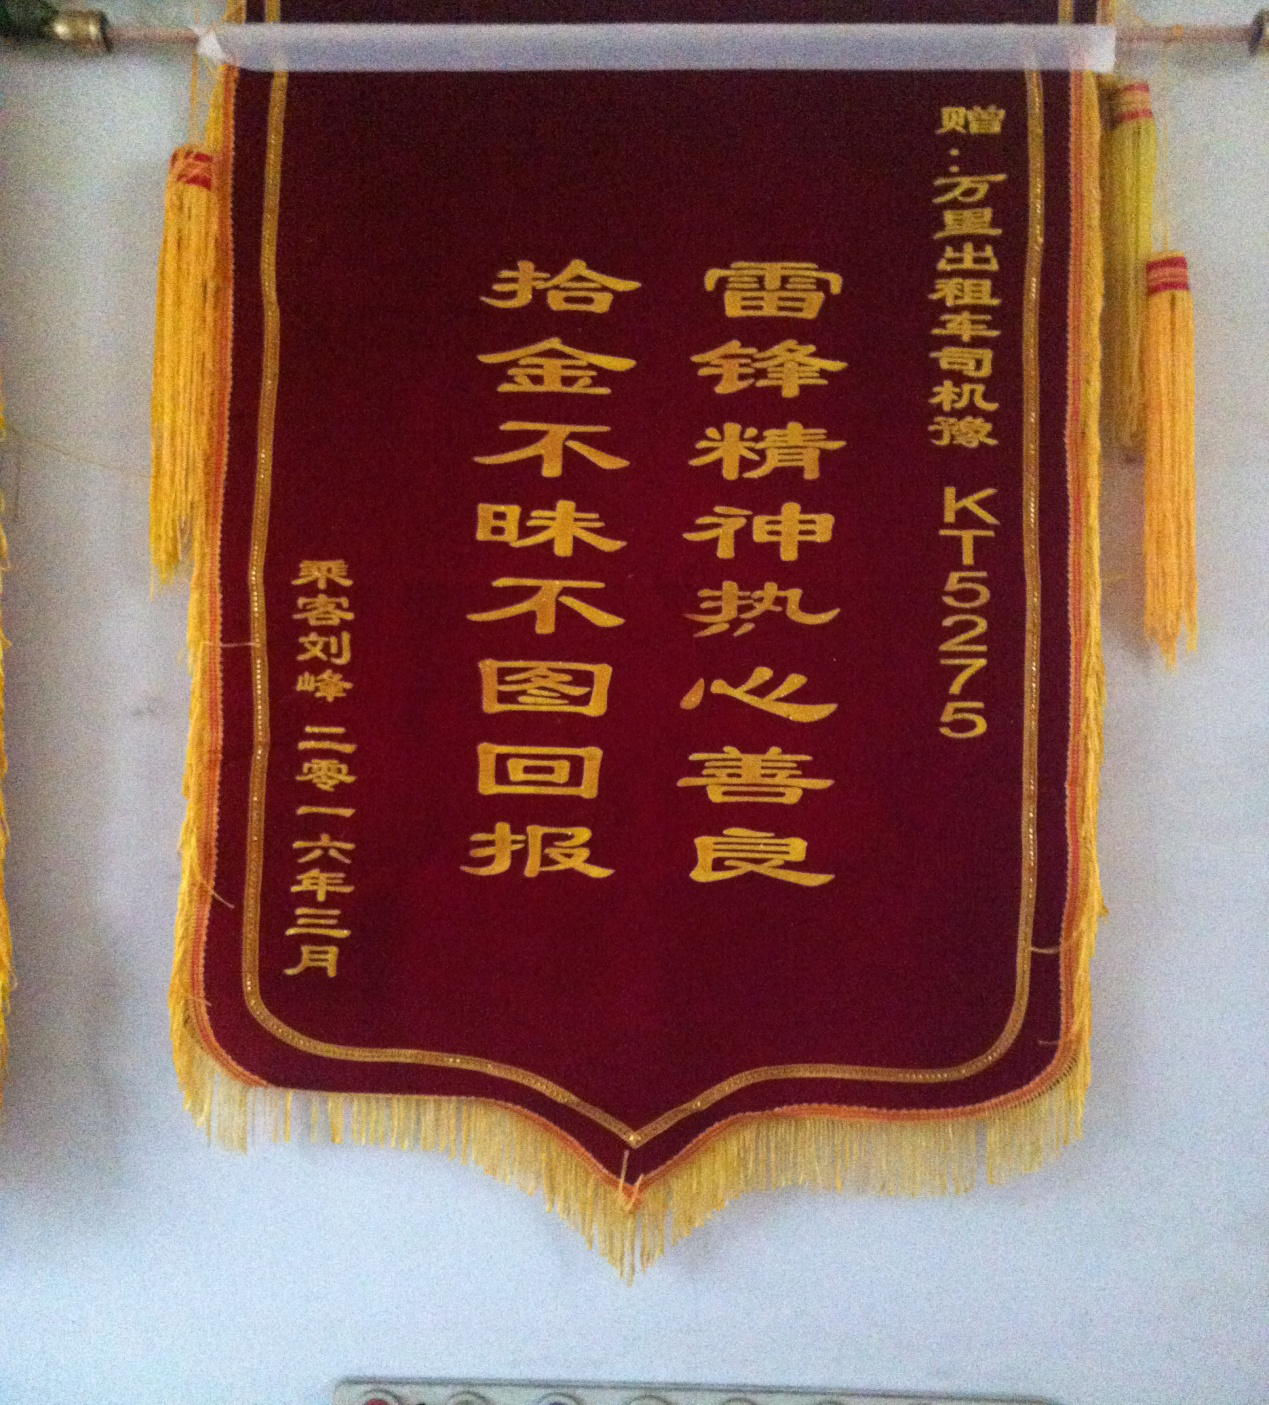 赠:万里出租车司机豫 KT5275
雷锋精神热心善良
拾金不昧不图回报
乘客刘峰 二零一六年三月